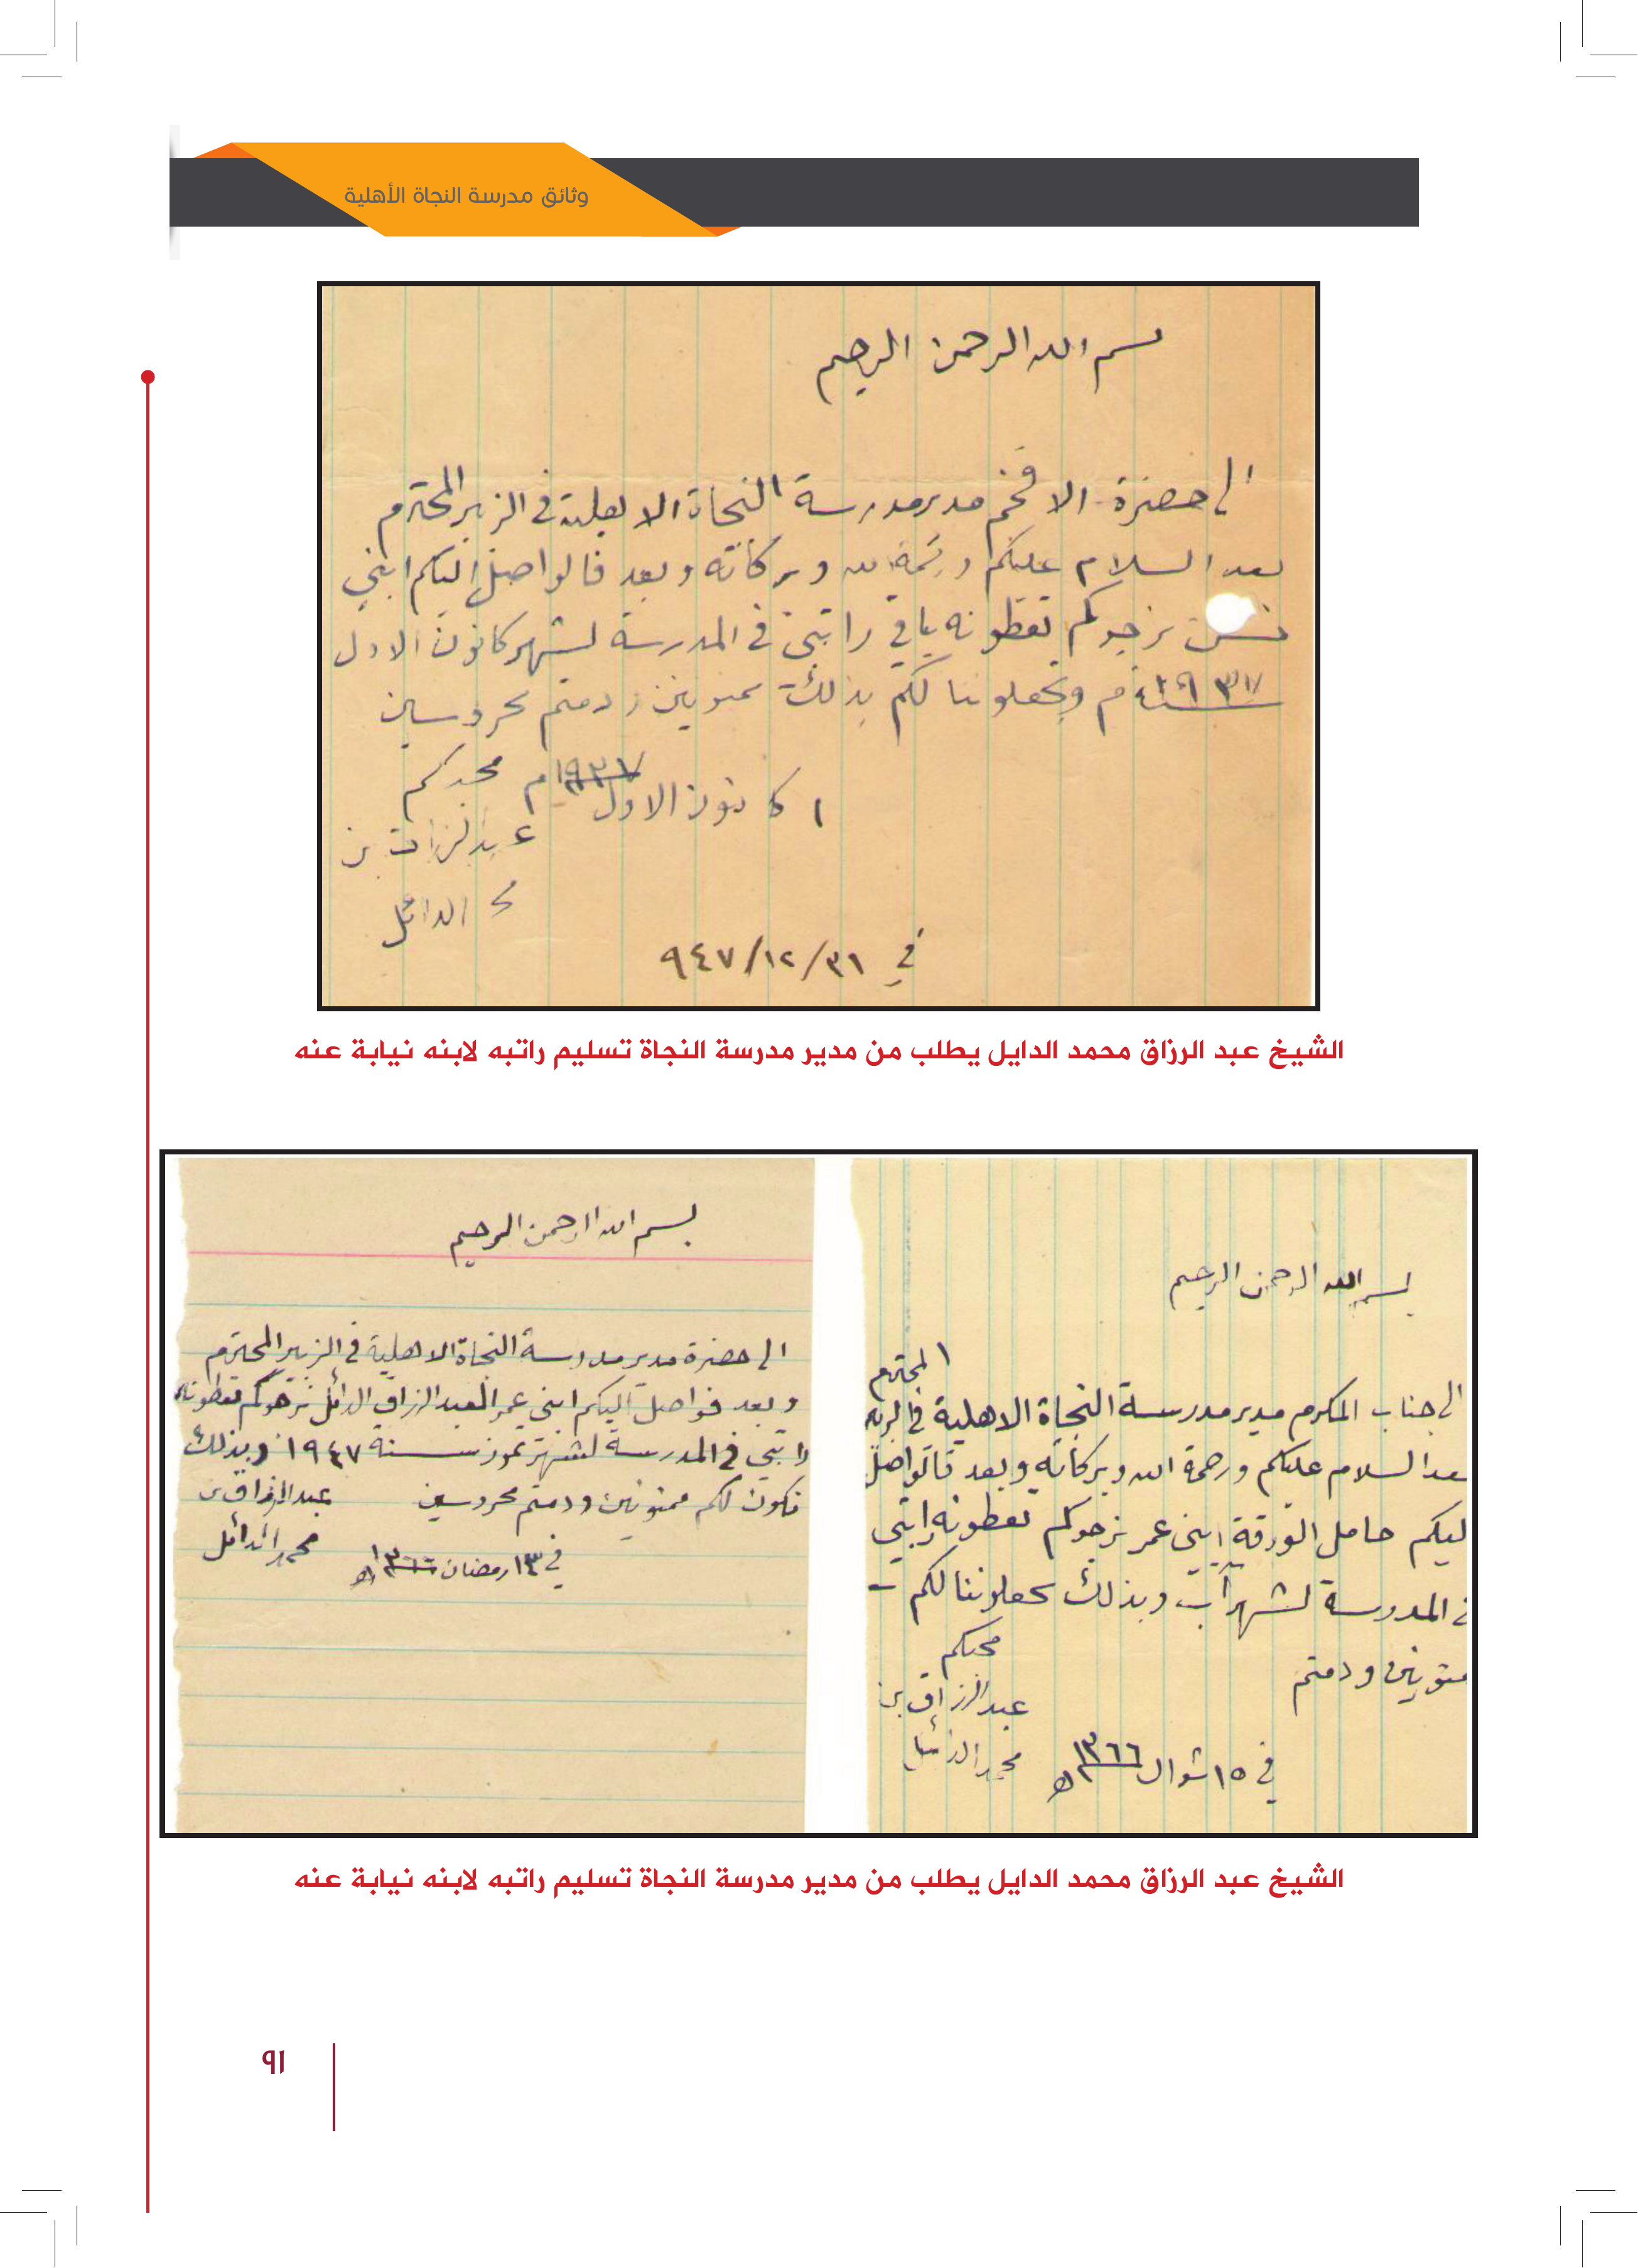 وثائق مدرسة النجاة الأهلية
بسم الله الرحمن الرحيم
الى حضرة الافخم مدير مدرسة النجاة الاهلية في الزبير المحترم
بعد السلام عليكم ورحمة الله وبركاته وبعد فالواصل اليكم ابني
نرجوكم تعطونه باقي راتبي في المدرسة لشهر كانون الاول
١٩٣٧ م وتجعلوننا لكم بذلك ممنونين ودمتم محروسين
١ كانون الاول ١٩٣٧م محبكم
عبد الرزاق بن
محمد الدائل
في ٣١/١٢/٩٤٧
الشيخ عبد الرزاق محمد الدايل يطلب من مدير مدرسة النجاة تسليم راتبه لابنه نيابة عنه
بسم الله الرحمن الرحيم
المحترم
الى جناب المكرم مدير مدرسة النجاة الاهلية في
بعد السلام عليكم ورحمة الله وبركاته وبعد فالواصل
ليكم حامل الورقة ابني عمر نرجوكم تعطونه راتبي
في المدرسة لشهر آب وبذلك تجعلوننا لكم –
ممنونين ودمتم
محبكم
عبد الرزاق بن
محمد الدائل
في ١٥ شوال ١٣٦٦ ه
بسم الله الرحمن الرحيم
الى حضرة مدير مدرسة النجاة الاهلية في الزبير المحترم
وبعد فواصل اليكم ابني عمر العبد الرزاق الدائل نرجوكم تعطونه
راتبي في المدرسة لشهر تموز سنة ١٩٤٧ وبذلك
نكون لكم ممنونين ودمتم محروسين
عبد الرزاق بن
محمد الدائل
في ١٣ رمضان ١٣٦٦ ه
الشيخ عبد الرزاق محمد الدايل يطلب من مدير مدرسة النجاة تسليم راتبه لابنه نيابة عنه
٩١